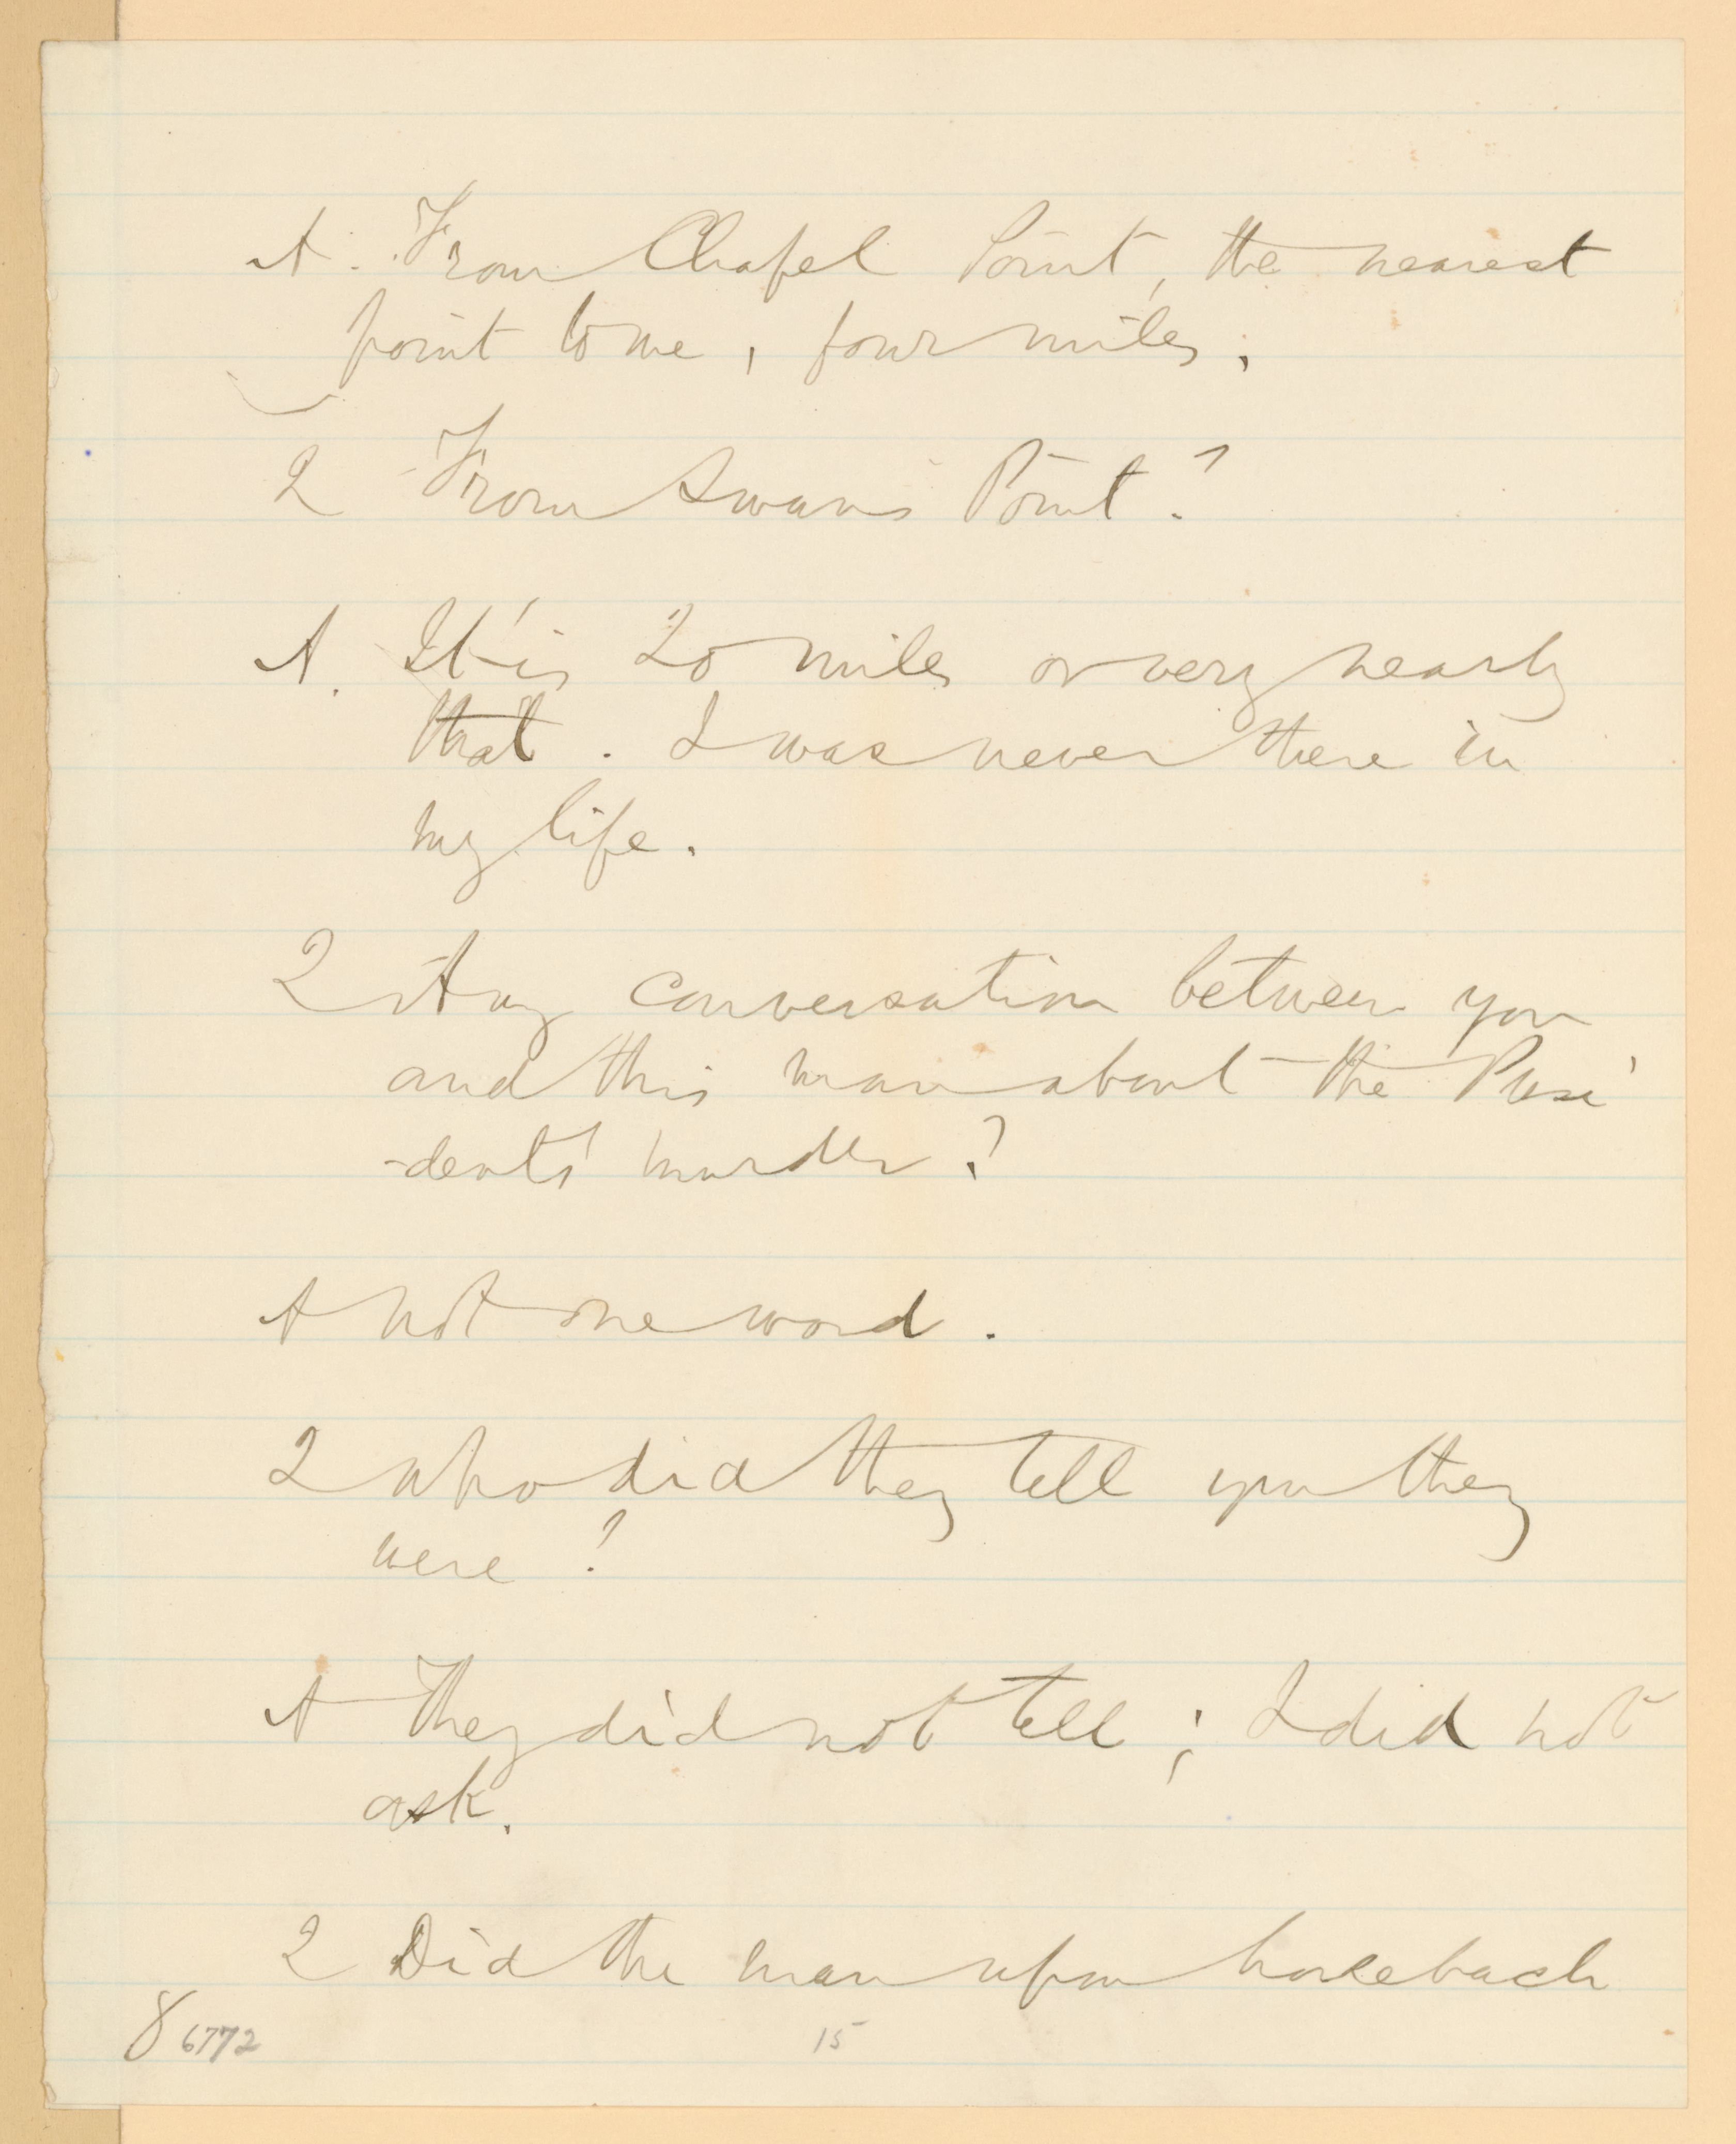 A. From Chapel Point, the nearest
point to me, four miles.
Q From Swans Point?
A. It is 20 miles or very nearly
that. I was never there in
my life.
Q Any conversation between you
and this man about the Presi
-dent's murder?
A not one word.
Q who did they tell you they
were?
A They did not tell; I did not
ask.
Q Did the man upon horseback
8 6772 15